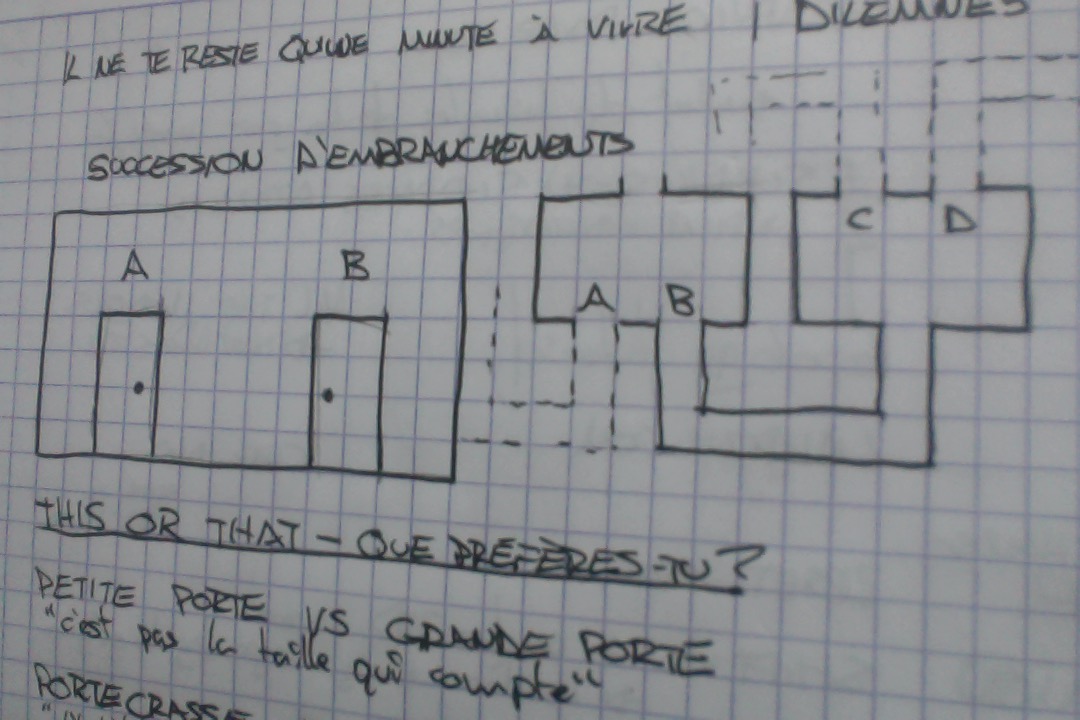 IL NE TE RESTE QU'UNE MINUTE À VIVRE | DILEMMES
SUCCESSION D'EMBRANCHEMENTS
A B
A B
C D
THIS OR THAT - QUE PRÉFÈRES-TU?
PETITE PORTE VS GRANDE PORTE
"c'est pas la taille qui compte"
PORTE CRASSE